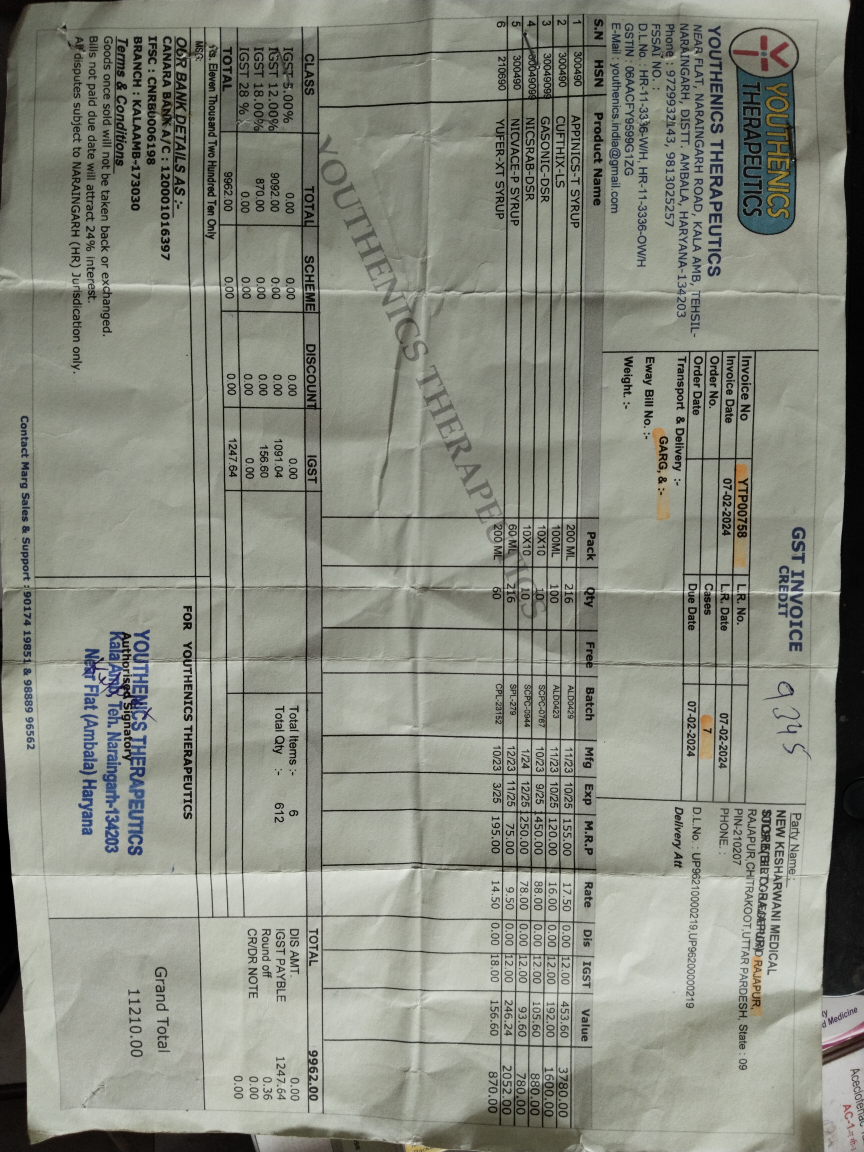 YOUTHENICS
THERAPEUTICS
YOUTHENICS THERAPEUTICS
NEAR FLAT, NARAINGARH ROAD, KALA AMB, TEHSIL-
NARAINGARH, DISTT. AMBALA, HARYANA-134203
Phone : 9729932143, 9813025257
FSSAI NO. :
D.L.No : HR-11-3336-W/H, HR-11-3336-OW/H
GSTIN : 06AACFY9599G1ZG
E-Mail : youthenics.india@gmail.com
GST INVOICE
CREDIT
9345
Invoice No YTP00758 L.R. No.
Invoice Date 07-02-2024 L.R. Date 07-02-2024
Order No. Cases 7
Order Date Due Date 07-02-2024
Transport & Delivery :-
GARG, & :-
Eway Bill No. :-
Weight. :-
Party Name :
NEW KESHARWANI MEDICAL
RAJAPUR,
RAJAPUR,CHITRAKOOT,UTTAR PARDESH, State : 09
PIN-210207
PHONE. :
D.L.No. : UP96210000219,UP96200000219
Delivery Att
S.N HSN Product Name Pack Qty Free Batch Mfg Exp M.R.P Rate Dis IGST Value
1 300490 APPINICS-T SYRUP 200 ML 216 ALD0429 11/23 10/25 155.00 17.50 0.00 12.00 453.60 3780.00
2 300490 CUFTHIX-LS 100ML 100 ALD0423 11/23 10/25 120.00 16.00 0.00 12.00 192.00 1600.00
3 30049099 GASONIC-DSR 10X10 10 SCPC-0767 10/23 9/25 1450.00 88.00 0.00 12.00 105.60 880.00
4 30049099 NICSRAB-DSR 10X10 10 SCPC-0944 1/24 12/25 1250.00 78.00 0.00 12.00 93.60 780.00
5 300490 NICVACE-P SYRUP 60 ML 216 SPL-279 12/23 11/25 75.00 9.50 0.00 12.00 246.24 2052.00
6 210690 YUFER-XT SYRUP 200 ML 60 CPL-23152 10/23 3/25 195.00 14.50 0.00 18.00 156.60 870.00
YOUTHENICS THERAPEUTICS
CLASS TOTAL SCHEME DISCOUNT IGST
IGST 5.00% 0.00 0.00 0.00 0.00
IGST 12.00% 9092.00 0.00 0.00 1091.04
IGST 18.00% 870.00 0.00 0.00 156.60
IGST 28 % 0.00 0.00 0.00 0.00
TOTAL 9962.00 0.00 0.00 1247.64
Total Items :- 6
Total Qty :- 612
TOTAL 9962.00
DIS AMT. 0.00
IGST PAYBLE 1247.64
Round off 0.36
CR/DR NOTE 0.00
0.00
Rs. Eleven Thousand Two Hundred Ten Only
MSG:
OUR BANK DETAILS AS :-
CANARA BANK A/C : 120001016397
IFSC : CNRB0006198
BRANCH : KALAAMB-173030
Terms & Conditions
Goods once sold will not be taken back or exchanged.
Bills not paid due date will attract 24% interest.
All disputes subject to NARAINGARH (HR) Jurisdication only.
FOR YOUTHENICS THERAPEUTICS
YOUTHENICS THERAPEUTICS
Authorised Signatory
Kala Amb, Teh. Naraingarh-134203
Near Flat (Ambala) Haryana
Grand Total
11210.00
Contact Marg Sales & Support : 90174 19851 & 98889 96562